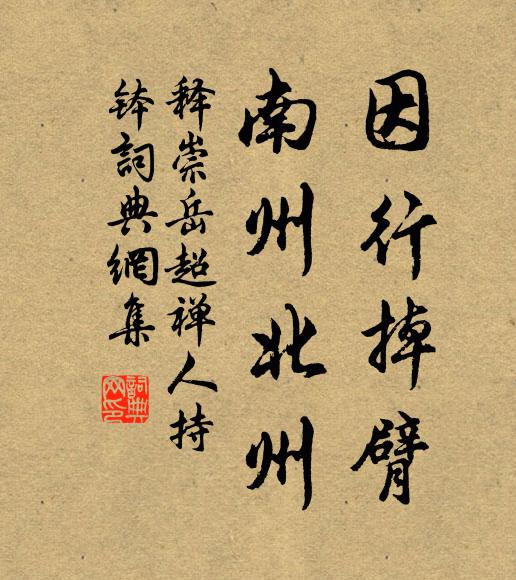 因行掉臂
南州北州
释崇岳超禅人持
钵詞典網集
詞典
网印